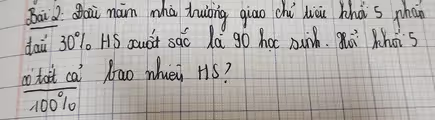 Bài 2. Đầu năm nhà trường giao chỉ tiêu khối 5 phấn
đấu 30% HS xuất sắc là 90 học sinh. Hỏi khối 5
có tất cả bao nhiêu HS?
100%